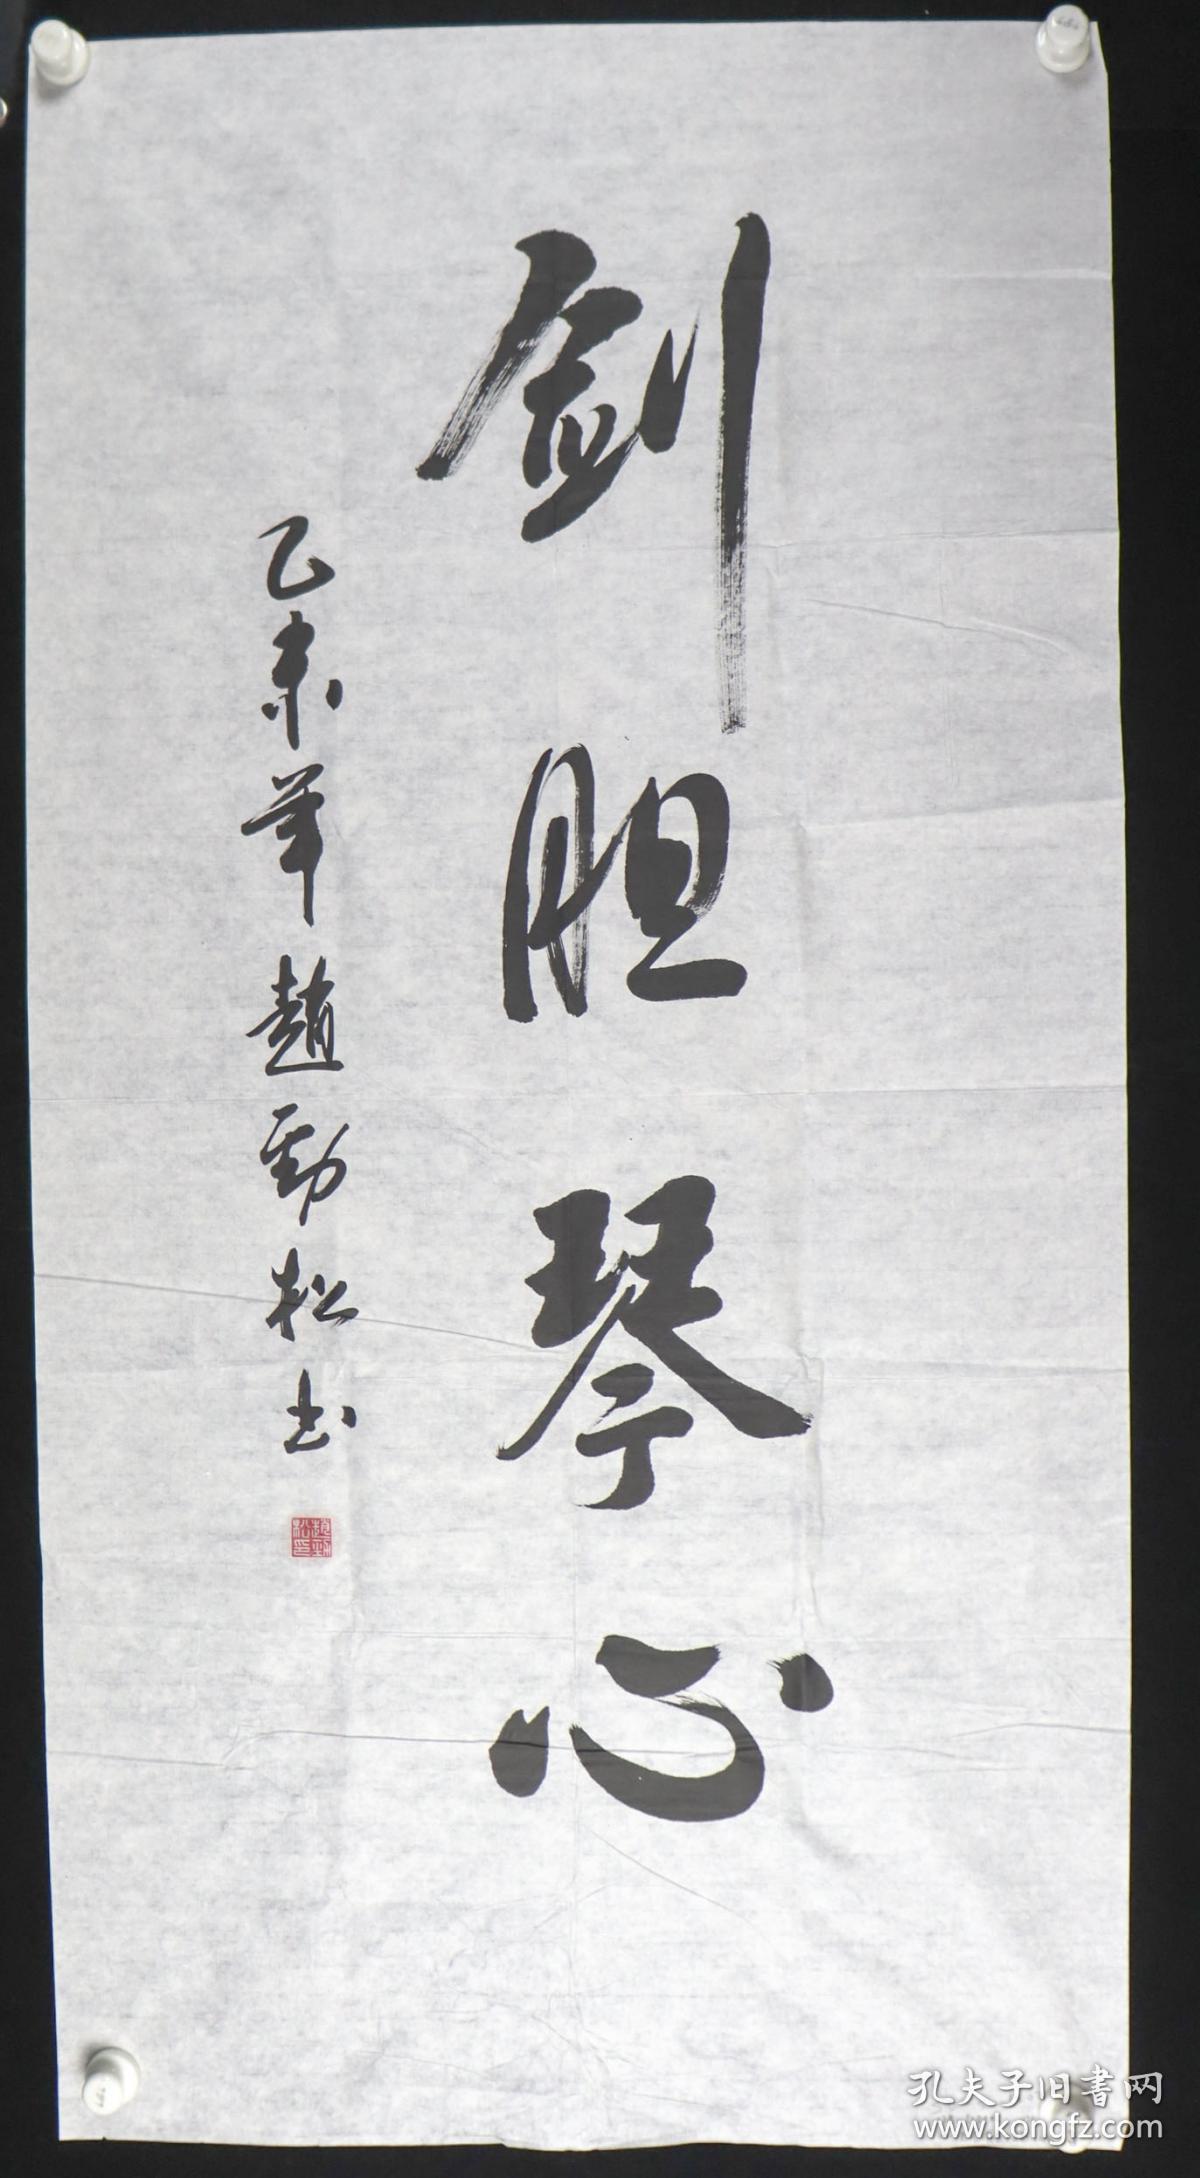 剑胆琴心
乙未年赵劲松书
赵劲松印
孔夫子旧書网
www.kongfz.com